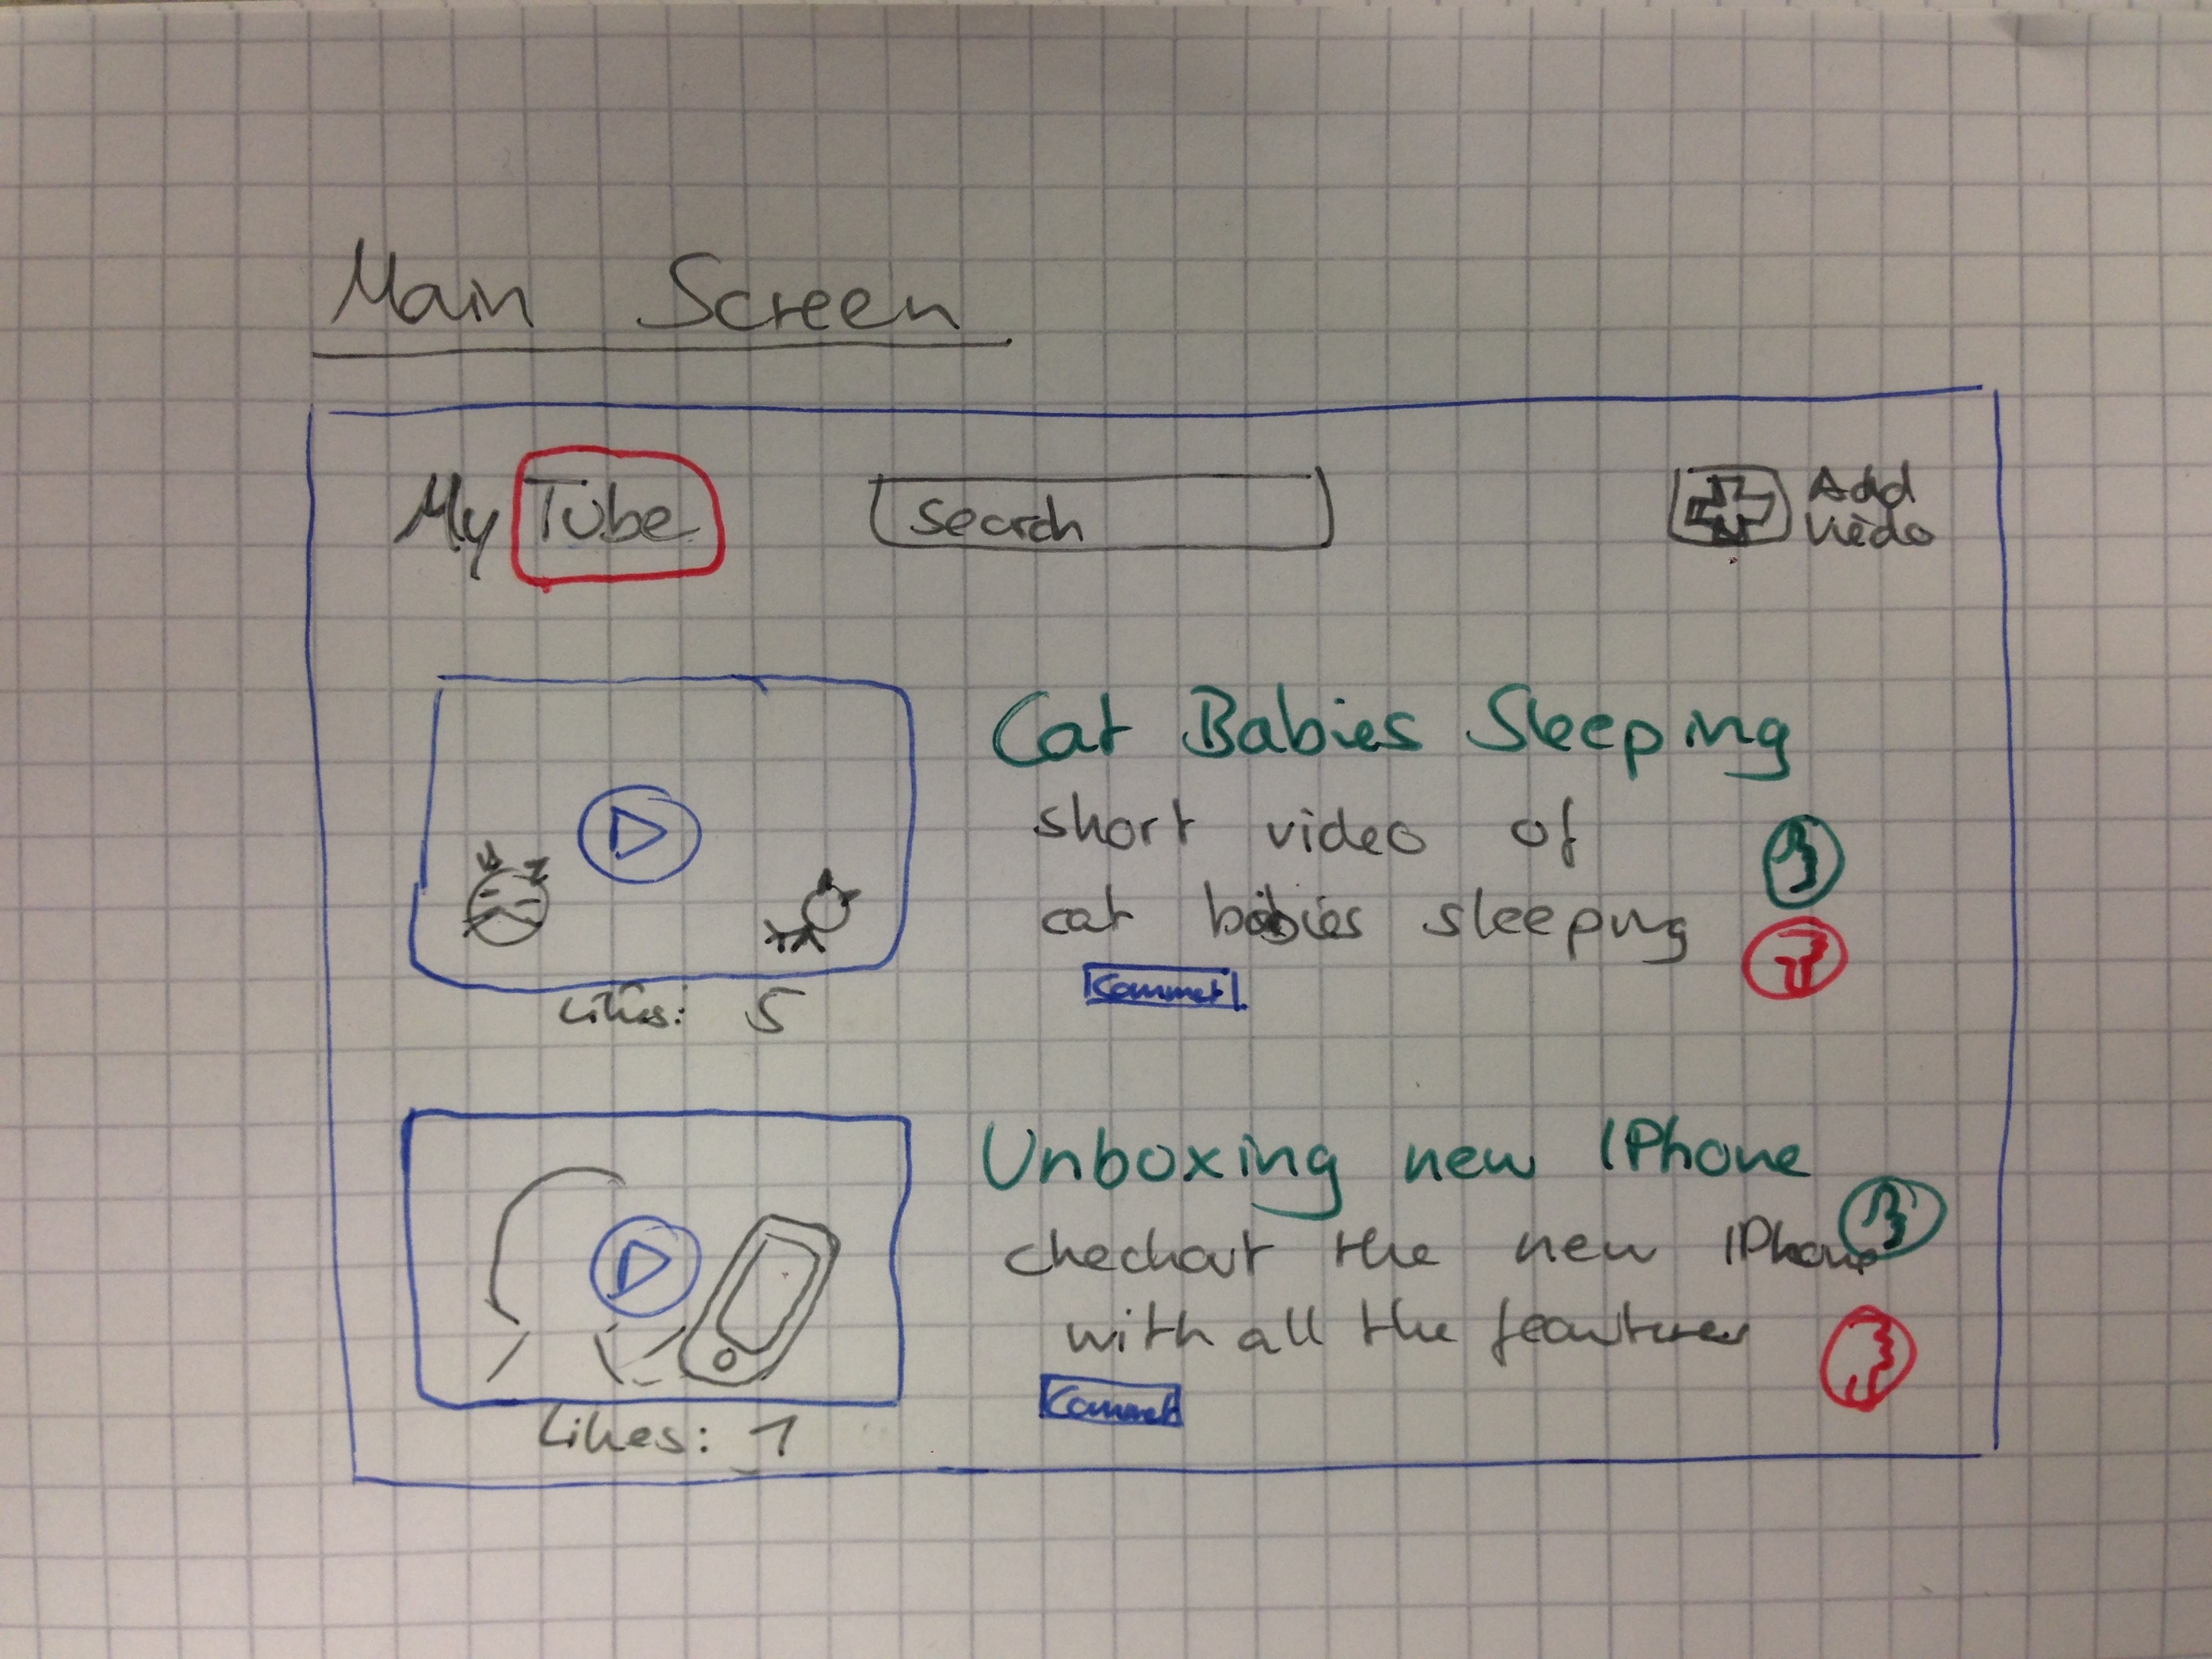 Main Screen
My Tube search Add
Viedo
Cat Babies Sleeping
short video of
cat babies sleeping
Commet
Likes: 5
Unboxing new IPhone
checkout the new IPhone
with all the features
Commet
Likes: 1